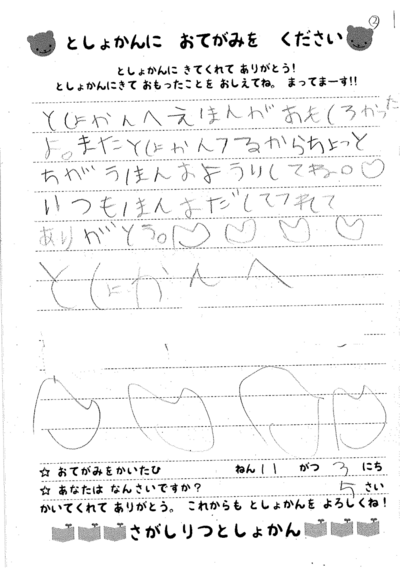 ②
としょかんに おてがみを ください
としょかんに きてくれて ありがとう!
としょかんにきて おもったことを おしえてね。 まってまーす!!
としょかんへえほんがおもしろかった
よ。またとしょかんくるからちょっと
ちがうほんおよういしてね。
いつもほんおだしてくれて
ありがとう。
としょかんへ
☆ おてがみをかいたひ ねん 11 がつ 3 にち
☆ あなたは なんさいですか? 5 さい
かいてくれて ありがとう。 これからも としょかんを よろしくね!
さがしりつとしょかん